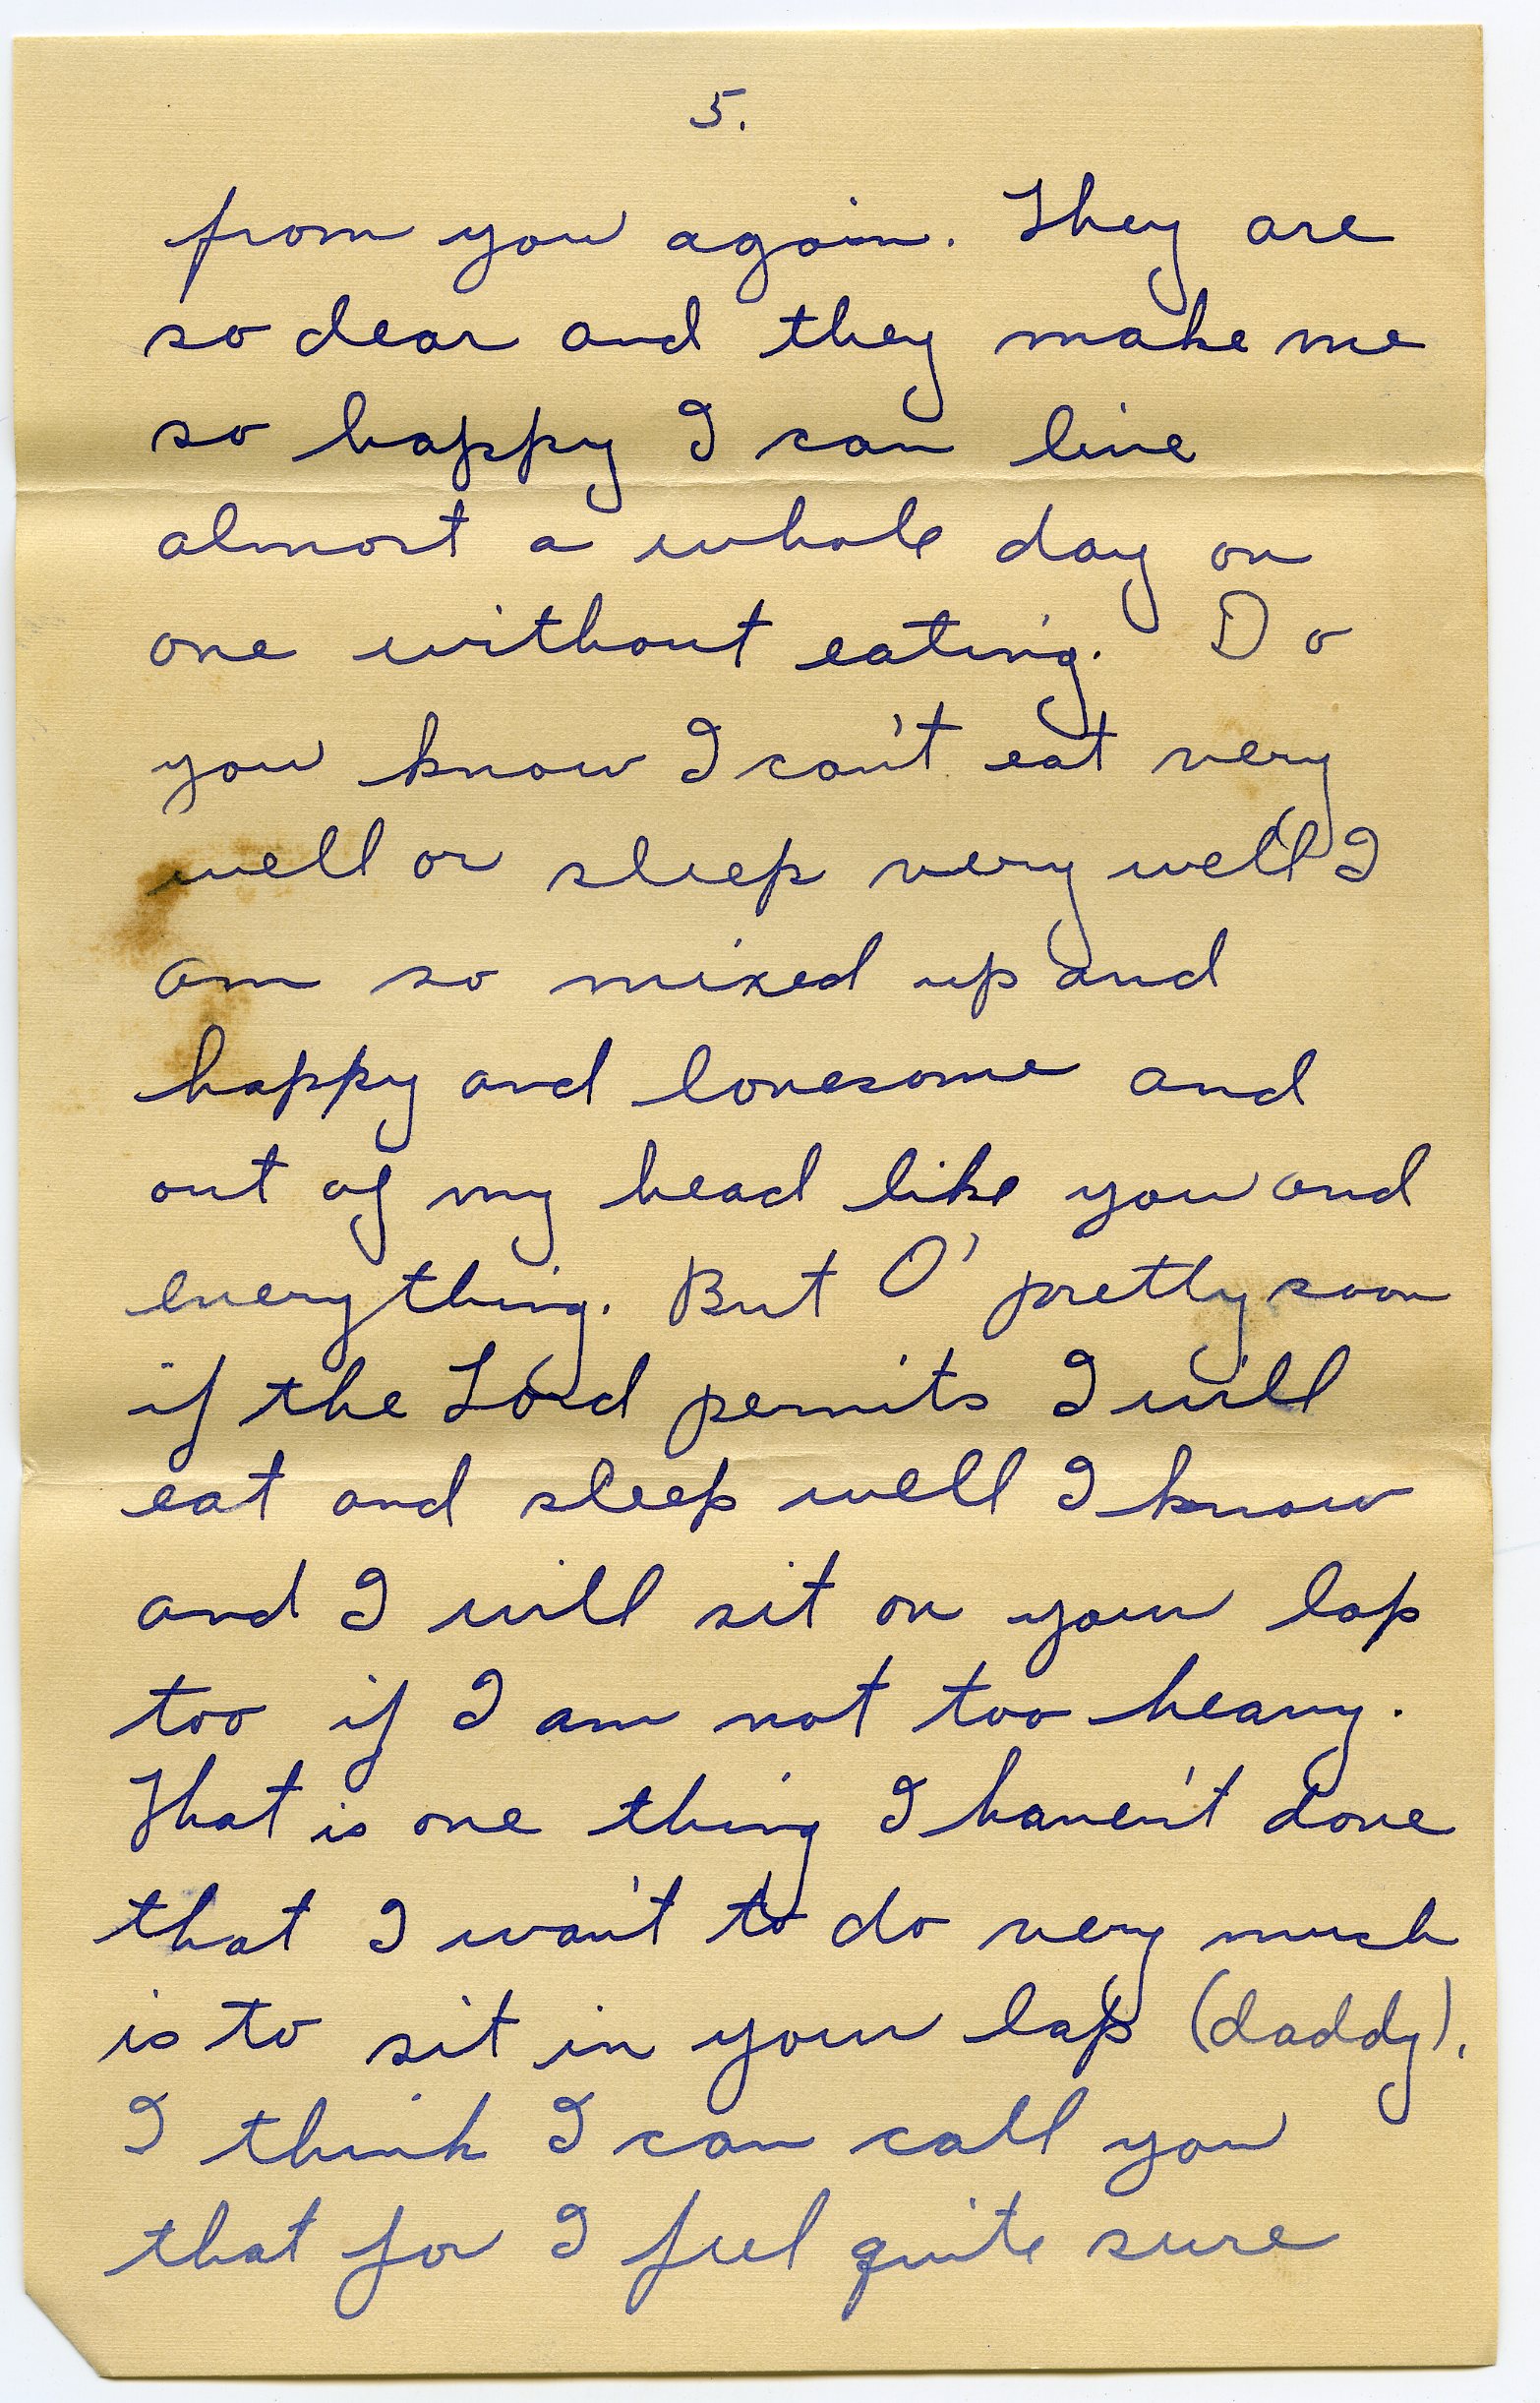 5.
from you again. They are
so dear and they make me
so happy I can live
almost a whole day on
one without eating. Do
you know I can't eat very
well or sleep very well I
am so mixed up and
happy and lonesome and
out of my head like you and
everything. But O' pretty soon
if the Lord permits I will
eat and sleep well I know
and I will sit on your lap
too if I am not too heavy.
That is one thing I haven't done
that I wan't to do very much
is to sit in your lap (daddy).
I think I can call you
that for I feel quite sure